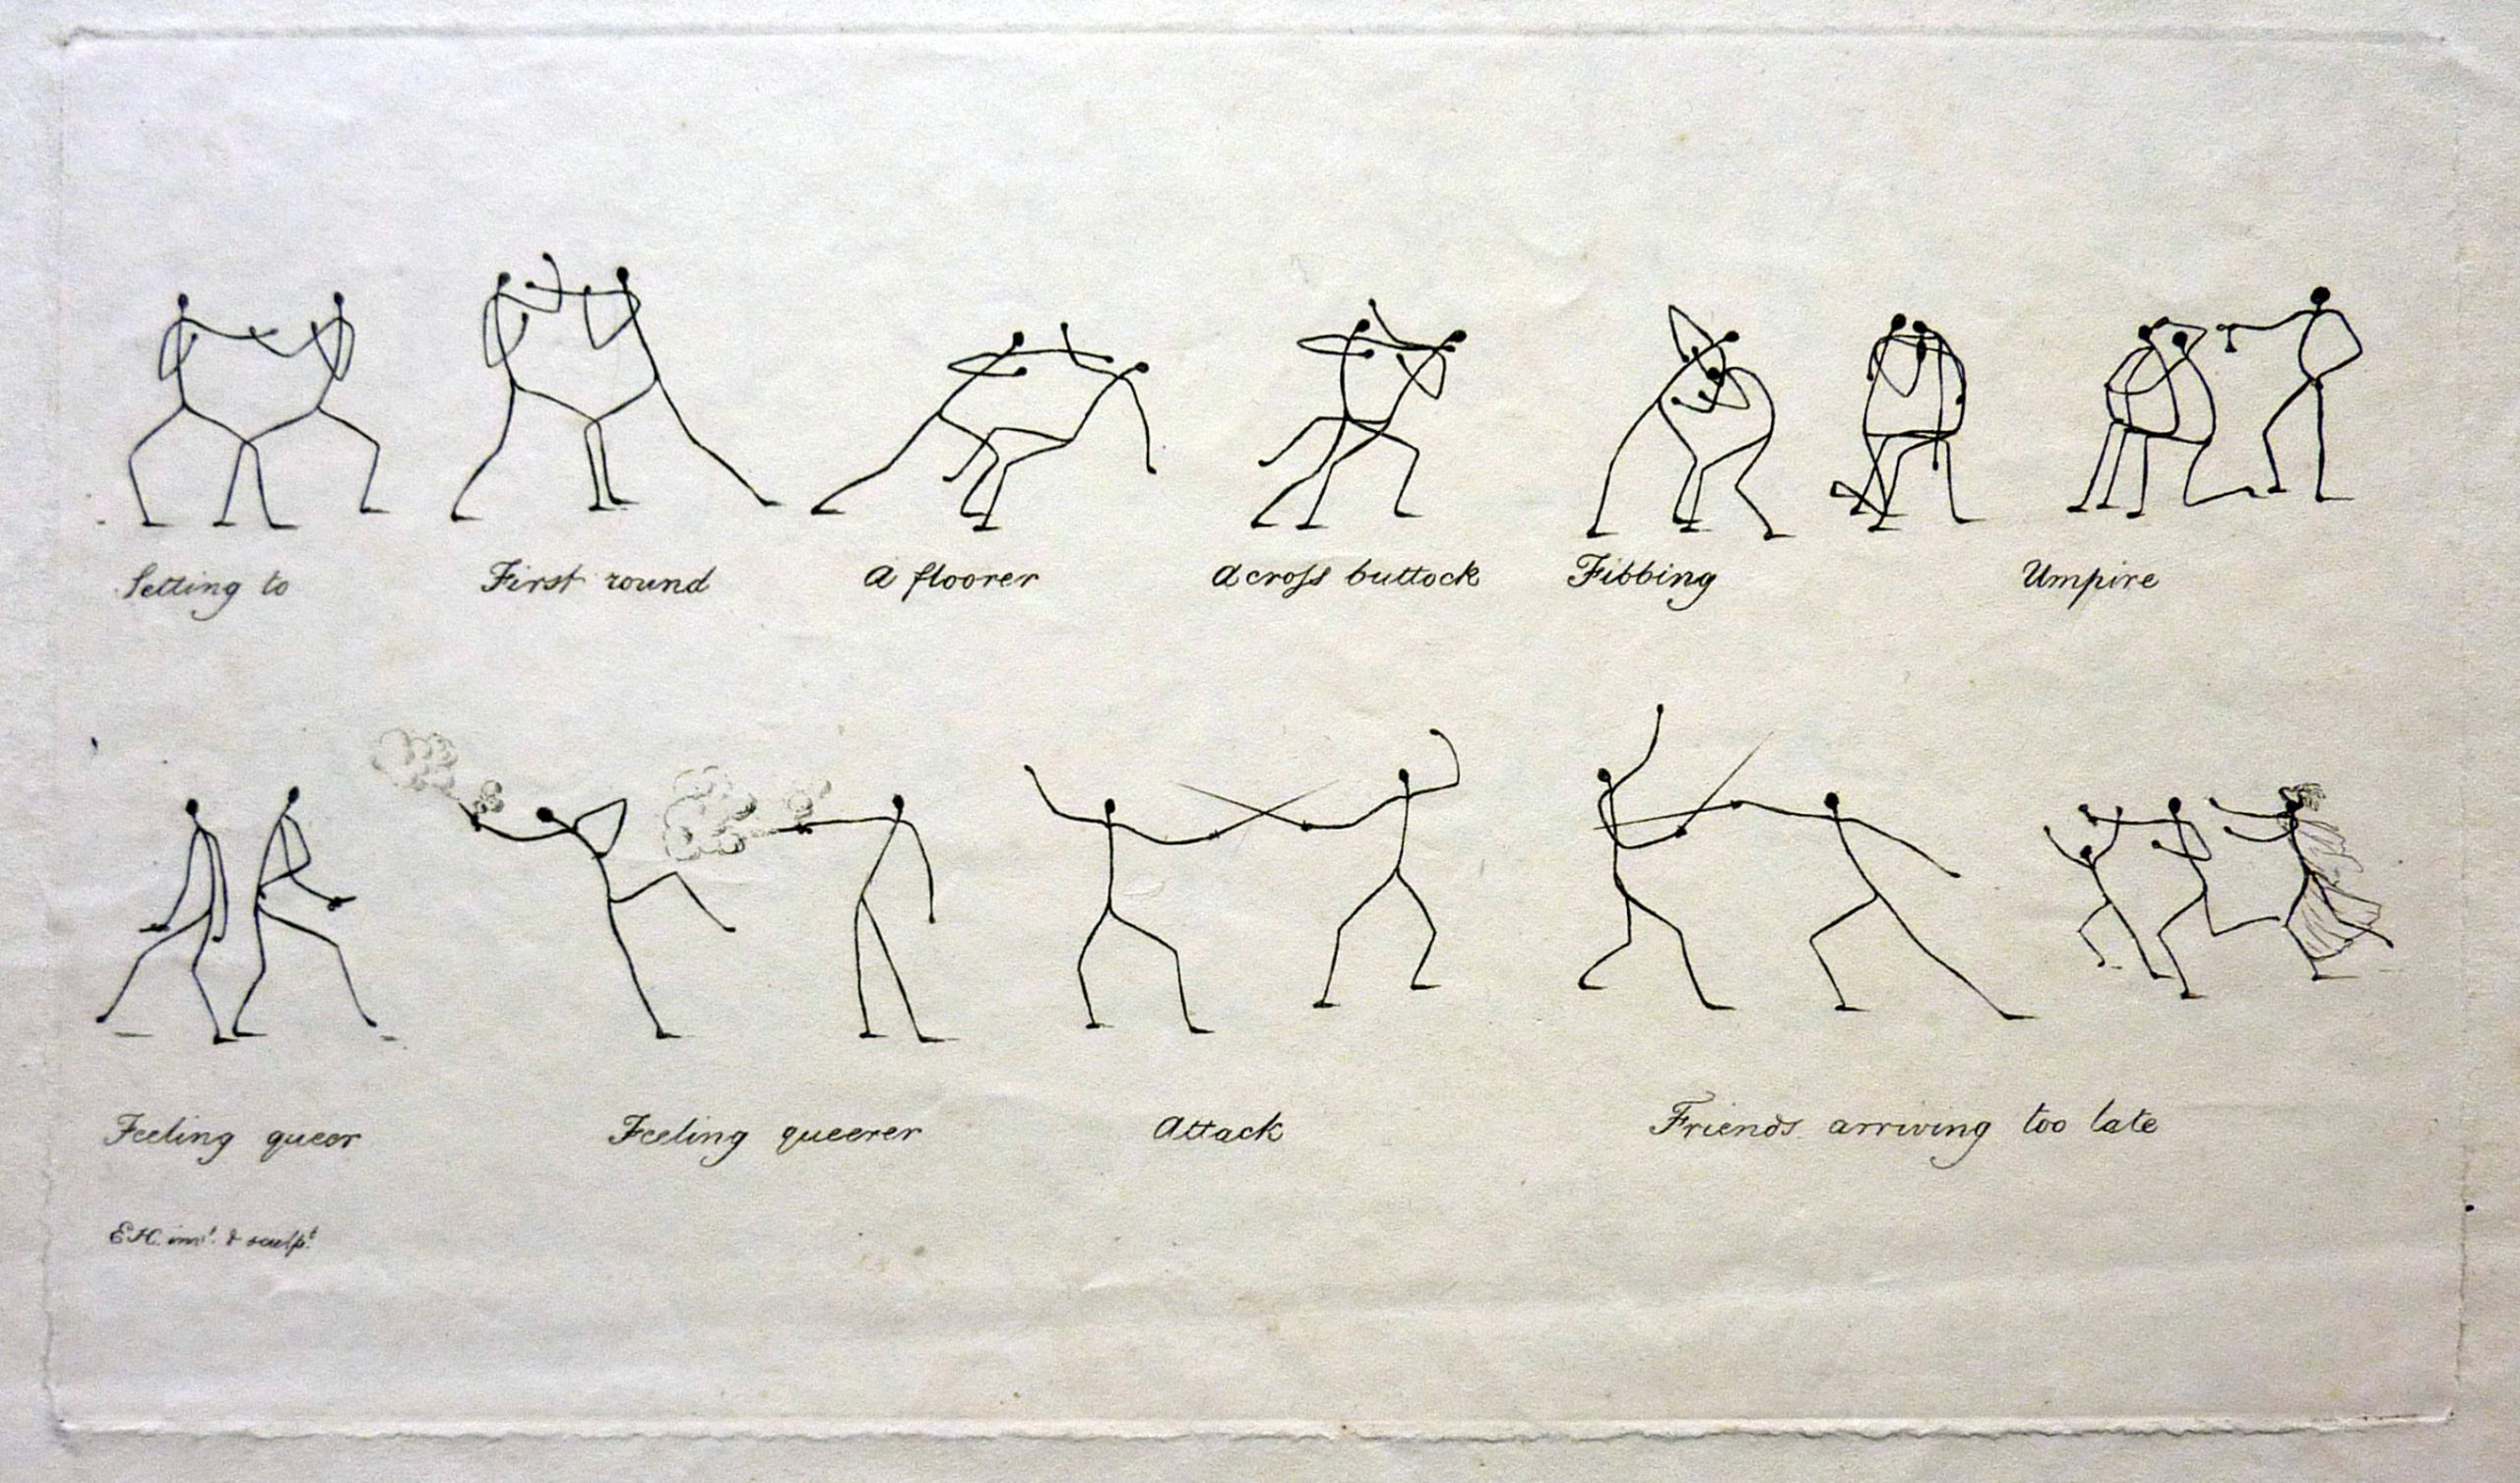 Setting to
First round
A floorer
Across buttock
Fibbing
Umpire
Feeling queer
Feeling queerer
Attack
Friends arriving too late
EH. invt. & sculpt.